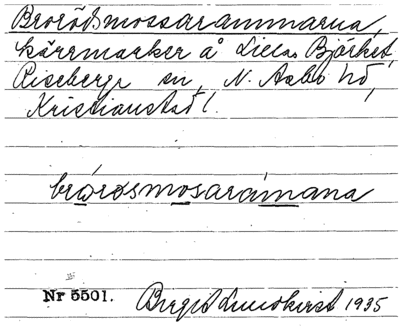 Brorödsmossarammarna,
kärrmarker å Lilla Björket,
Riseberga sn, N. Åsbo hd,
Kristianstad l.
brórøsmosarámana
Nr 5501. Birgit Lundkvist 1935